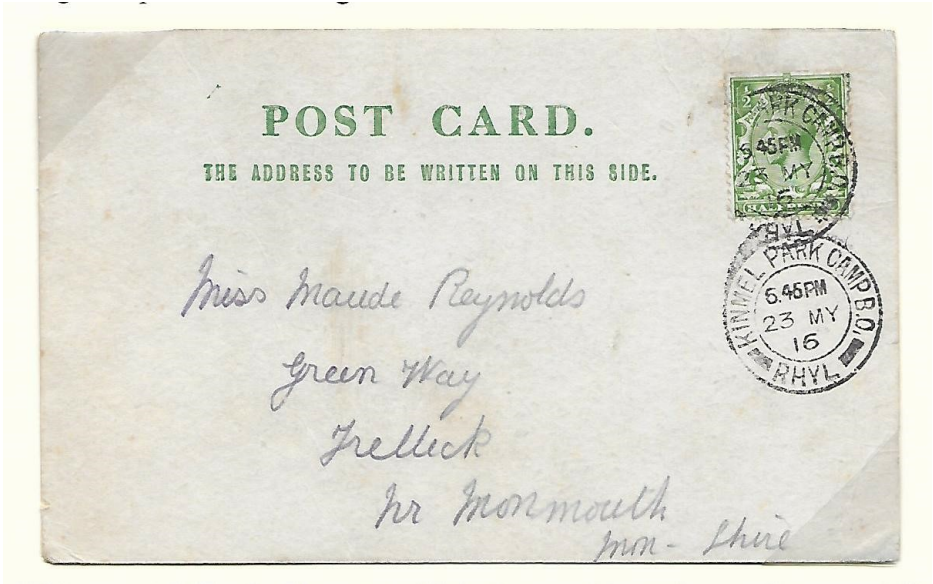 POST CARD.
THE ADDRESS TO BE WRITTEN ON THIS SIDE.
PARK CAMP B.O.
5.45PM
23 MY
16
RHYL
KINMEL PARK CAMP B.O.
5.45PM
23 MY
16
RHYL
Miss Maude Reynolds
Green Way
Trelleck
nr Monmouth
Mon- Shire